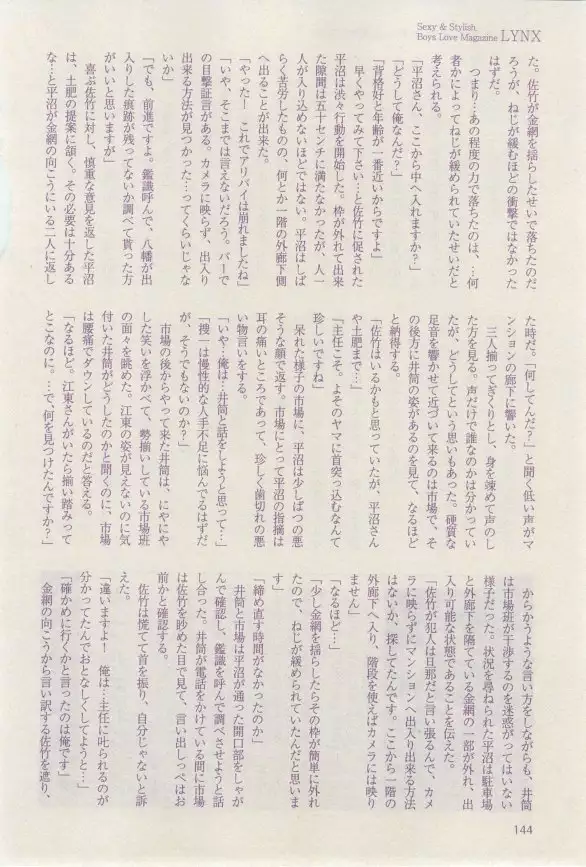 Sexy & Stylish
Boys Love Magazine LYNX
た。佐竹が金網を揺らしたせいで落ちたのだ
ろうが、ねじが緩むほどの衝撃ではなかった
はずだ。
つまり…あの程度の力で落ちたのは、…何
者かによってねじが緩められていたせいだと
考えられる。
「平沼さん、ここから中へ入れますか？」
「どうして俺なんだ？」
「背格好と年齢が一番近いからですよ」
早くやってみて下さい…と佐竹に促された
平沼は渋々行動を開始した。枠が外れて出来
た隙間は五十センチに満たなかったが、人一
人が入り込めないほどではない。平沼はしば
らく苦労したものの、何とか一階の外廊下側
へ出ることが出来た。
「やったー　これでアリバイは崩れましたね」
「いや、そこまでは言えないだろう。バーで
の目撃証言がある。カメラに映らず、出入り
出来る方法が見つかった…ってくらいじゃな
いか」
「でも、前進ですよ。鑑識呼んで、八幡が出
入りした痕跡が残ってないか調べて貰った方
がいいと思いますが」
喜ぶ佐竹に対し、慎重な意見を返した平沼
は、土肥の提案に頷く。その必要は十分ある
な…と平沼が金網の向こうにいる二人に返し
た時だ。「何してんだ？」と聞く低い声がマ
ンションの廊下に響いた。
三人揃ってぎくりとし、身を竦めて声のし
た方を見る。声だけで誰なのかは分かってい
たが、どうしてという思いもあった。硬質な
足音を響かせて近づいて来るのは市場で、そ
の後方に井筒の姿があるのを見て、なるほど
と納得する。
「佐竹はいるかもと思っていたが、平沼さん
や土肥まで…」
「主任こそ。よそのヤマに首突っ込むなんて
珍しいですね」
呆れた様子の市場に、平沼は少しばつの悪
そうな顔で返す。市場にとって平沼の指摘は
耳の痛いところであって、珍しく歯切れの悪
い物言いをする。
「いや…俺は…井筒と話をしようと思って…」
「捜一は慢性的な人手不足に悩んでるはずだ
が、そうでもないのか？」
市場の後からやって来た井筒は、にやにや
した笑いを浮かべて、勢揃いしている市場班
の面々を眺めた。江東の姿が見えないのに気
付いた井筒がどうしたのかと聞くのに、市場
は腰痛でダウンしているのだと答える。
「なるほど。江東さんがいたら揃い踏みって
とこなのに。…で、何を見つけたんですか？」
からかうような言い方をしながらも、井筒
は市場班が干渉するのを迷惑がってはいない
様子だった。状況を尋ねられた平沼は駐車場
と外廊下を隔てている金網の一部が外れ、出
入り可能な状態であることを伝えた。
「佐竹が犯人は旦那だと言い張るんで、カメ
ラに映らずにマンションへ出入り出来る方法
はないか、探してたんです。ここから一階の
外廊下へ入り、階段を使えばカメラには映り
ません」
「なるほど…」
「少し金網を揺らしたらその枠が簡単に外れ
たので、ねじが緩められていたんだと思いま
す」
「締め直す時間がなかったのか」
井筒と市場は平沼が通った開口部をしゃが
んで確認し、鑑識を呼んで調べさせようと話
し合った。井筒が電話をかけている間に市場
は佐竹を眇めた目で見て、言い出しっぺはお
前かと確認する。
佐竹は慌てて首を振り、自分じゃないと訴
えた。
「違いますよ！　俺は…主任に叱られるのが
分かってたんでおとなしくしてようと…」
「確かめに行くかと言ったのは俺です」
金網の向こうから言い訳する佐竹を遮り、
144